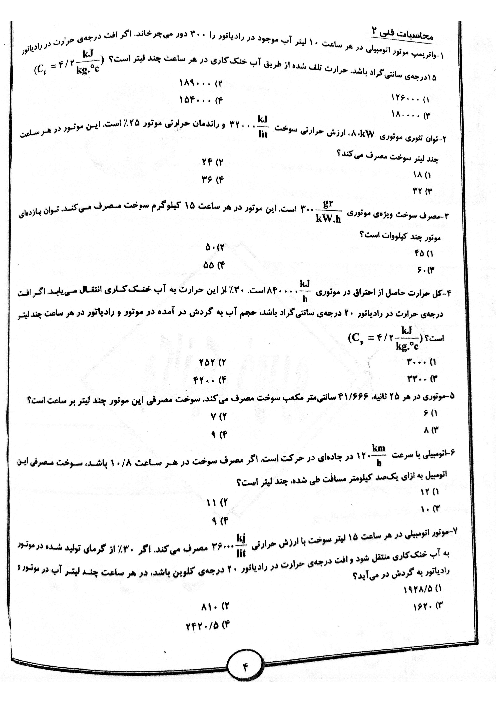 محاسبات فنی ۲
۱- واترپمپ موتور اتومبیلی در هر ساعت ۱۰ لیتر آب موجود در رادیاتور را ۳۰۰ دور می‌چرخاند. اگر افت درجه‌ی حرارت در رادیاتور
۱۵ درجه‌ی سانتی‌گراد باشد. حرارت تلف شده از طریق آب خنک‌کاری در هر ساعت چند لیتر است؟ (C_s = ۴/۲ kJ/kg.°c)
۱) ۱۲۶۰۰۰ ۲) ۱۸۹۰۰۰
۳) ۱۸۰۰۰۰ ۴) ۱۵۴۰۰۰
۲- توان تئوری موتوری ۸۰kW، ارزش حرارتی سوخت ۳۲۰۰۰ kJ/lit و راندمان حرارتی موتور ۲۵٪ است. این موتور در هر ساعت
چند لیتر سوخت مصرف می‌کند؟
۱) ۱۸ ۲) ۲۴
۳) ۳۲ ۴) ۳۶
۳- مصرف سوخت ویژه‌ی موتوری ۳۰۰ gr/kW.h است. این موتور در هر ساعت ۱۵ کیلوگرم سوخت مصرف می‌کند. توان بازده‌ای
موتور چند کیلووات است؟
۱) ۴۵ ۲) ۵۰
۳) ۶۰ ۴) ۵۵
۴- کل حرارت حاصل از احتراق در موتوری ۸۴۰۰۰۰ kJ/h است. ۳۰٪ از این حرارت به آب خنک‌کاری انتقال می‌یابد. اگر افت
درجه‌ی حرارت در رادیاتور ۲۰ درجه‌ی سانتی‌گراد باشد، حجم آب به گردش در آمده در موتور و رادیاتور در هر ساعت چند لیتر
است؟ (C_s = ۴/۲ kJ/kg.°c)
۱) ۳۰۰۰ ۲) ۲۵۲
۳) ۳۳۰۰ ۴) ۴۲۰۰
۵- موتوری در هر ۲۵ ثانیه، ۴۱/۶۶۶ سانتی‌متر مکعب سوخت مصرف می‌کند. سوخت مصرفی این موتور چند لیتر بر ساعت است؟
۱) ۶ ۲) ۷
۳) ۸ ۴) ۹
۶- اتومبیلی با سرعت ۱۲۰ km/h در جاده‌ای در حرکت است. اگر مصرف سوخت در هر ساعت ۱۰/۸ باشد، سوخت مصرفی این
اتومبیل به ازای یک‌صد کیلومتر مسافت طی شده، چند لیتر است؟
۱) ۱۲ ۲) ۱۱
۳) ۱۰ ۴) ۹
۷- موتور اتومبیلی در هر ساعت ۱۵ لیتر سوخت با ارزش حرارتی ۳۶۰۰۰ kj/lit مصرف می‌کند. اگر ۳۰٪ از گرمای تولید شده در موتور
به آب خنک‌کاری منتقل شود و افت درجه‌ی حرارت در رادیاتور ۲۰ درجه‌ی کلوین باشد، در هر ساعت چند لیتر آب در موتور و
رادیاتور به گردش در می‌آید؟
۱) ۱۹۲۸/۵ ۲) ۸۱۰
۳) ۱۶۲۰ ۴) ۲۴۲۰/۵
۴